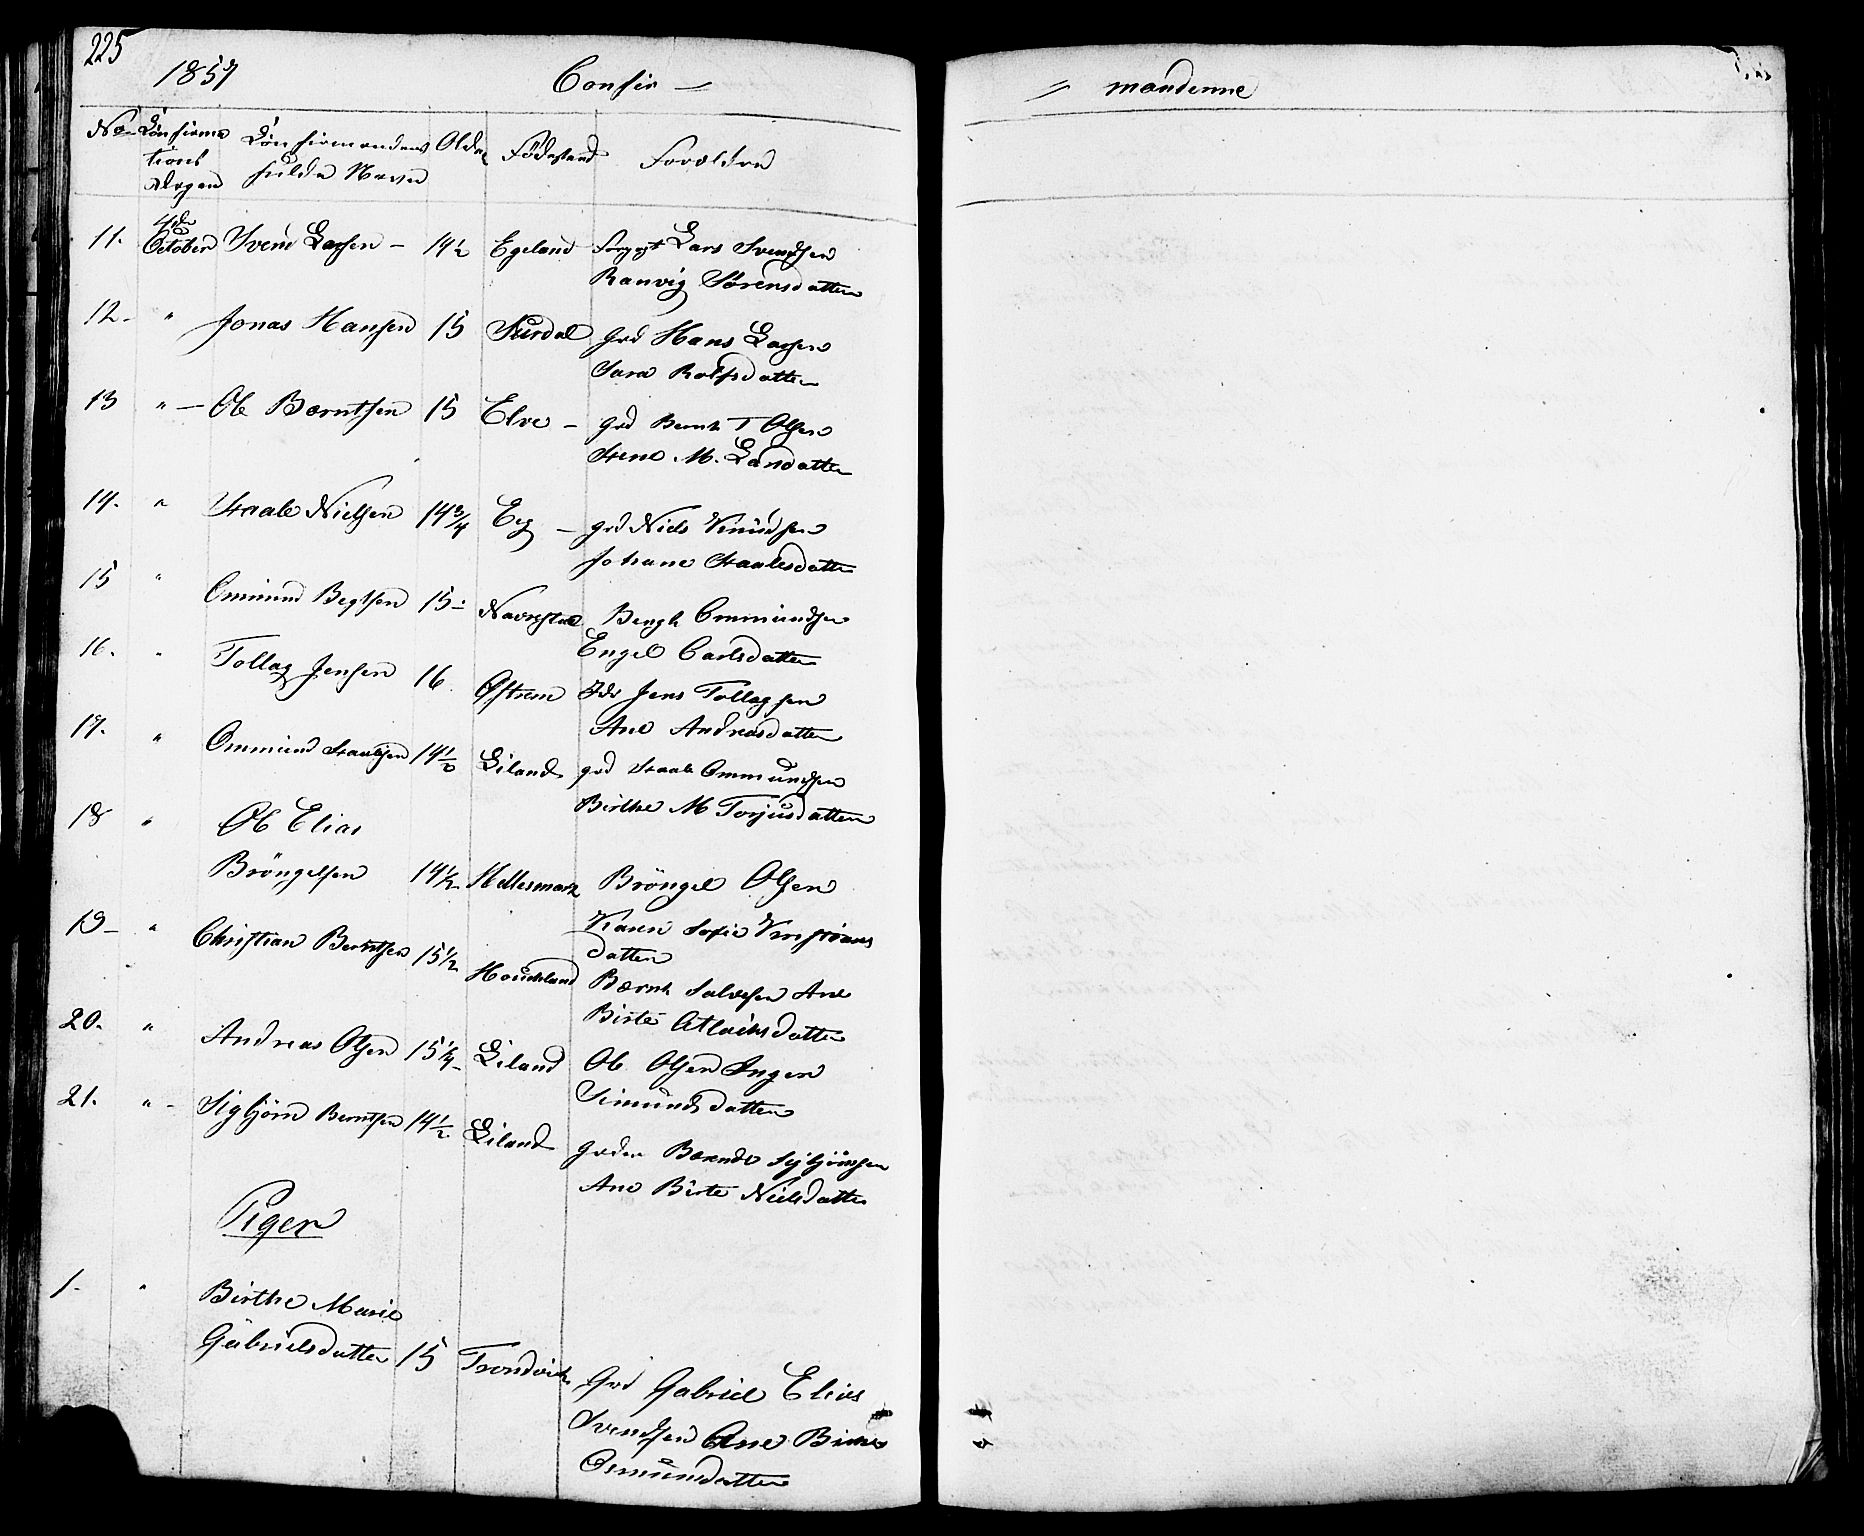 225
1857 Confir — — mandenne
No Confirma Confirmandens Alder Fødested Forældre
tions fulde Navn
Dagen
11. 4de October Svend Larsen — 14½ Egeland Lars Svendsen
Ranvig Sørensdatter
12. " Jonas Hansen 15 Surdal Grd Hans Larsen
Sara Rolfsdatter
13 " — Ole Berntsen 15 Elve — grd Bernt T Olsen
M. Larsdatter
14. " Staale Nielsen 14¾ Eeg — grd Niels Knudsen
Johane Staalesdatter
15 " Ommund Bentsen 15 Navrestad Bengt Ommundsen
Engel Carlsdatter
16. " Tollag Jensen 16 Østrem Jens Tollagsen
Ane Andreasdatter
17. " Ommund Staalesen 14½ Liland grd Staale Ommundsen
Birthe M Torjusdatter
18 " Ole Elias
Bröngelsen 14½ Hellesmark Bröngel Olsen
Karen Sofie
datter
19 — " Christian Berntsen 15½ Houkland Bernt Salvesen Ane
Birte Atlaksdatter
20. " Andreas Olsen 15¼ Liland Ole Olsen Inger
Simundsdatter
21. " - Sigbjörn Berntsen 14½ Liland grden Berndt Sigbjörnsen
Ane Birte Nielsdatter
Piger
1. " Birthe Marie
Gabrielsdatter 15 Trondvik Grd Gabriel Elias
Svendsen Ane Birthe
Osmundsdatter